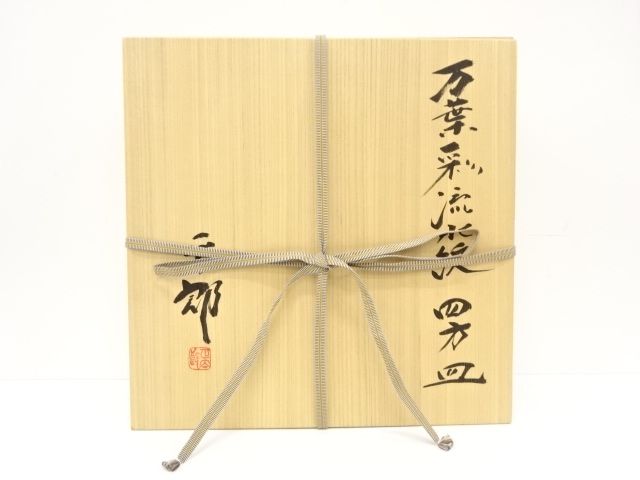 万葉彩流水紋 四方皿
郎